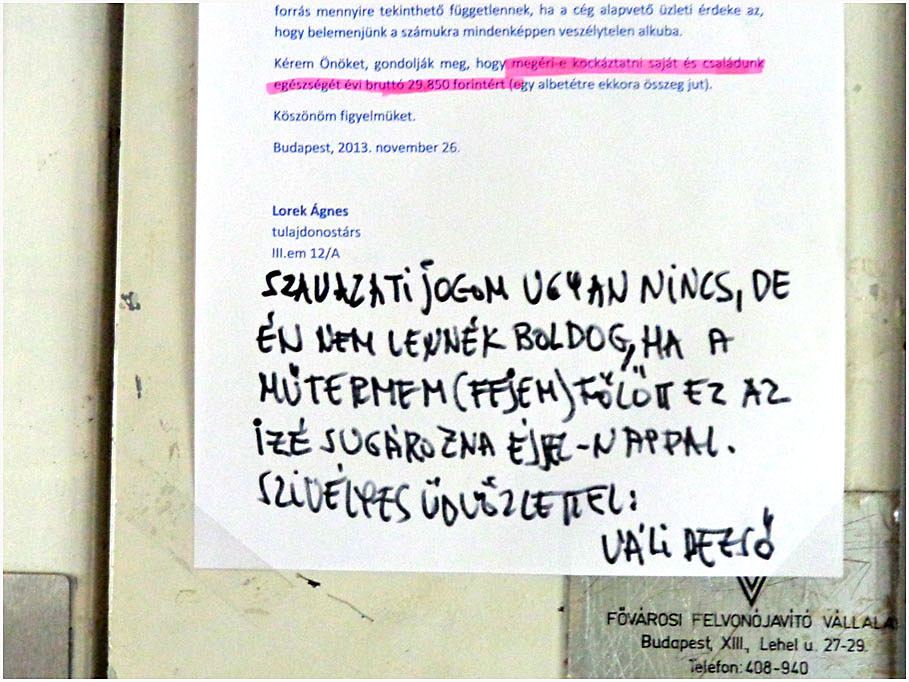 forrás mennyire tekinthető függetlennek, ha a cég alapvető üzleti érdeke az,
hogy belemenjünk a számukra mindenképpen veszélytelen alkuba.
Kérem Önöket, gondolják meg, hogy megéri-e kockáztatni saját és családunk
egészségét évi bruttó 29.850 forintért (egy albetétre ekkora összeg jut).
Köszönöm figyelmüket.
Budapest, 2013. november 26.
Lorek Ágnes
tulajdonostárs
III.em 12/A
SZAVAZATI JOGOM UGYAN NINCS, DE
ÉN NEM LENNÉK BOLDOG, HA A
MŰTERMEM (FEJEM) FÖLÖTT EZ AZ
IZÉ SUGÁROZNA ÉJJEL-NAPPAL.
SZIVÉLYES ÜDVÖZLETTEL:
VÁLI DEZSŐ
FŐVÁROSI FELVONÓJAVÍTÓ VÁLLALA
Budapest, XIII., Lehel u. 27-29.
Telefon: 408-940